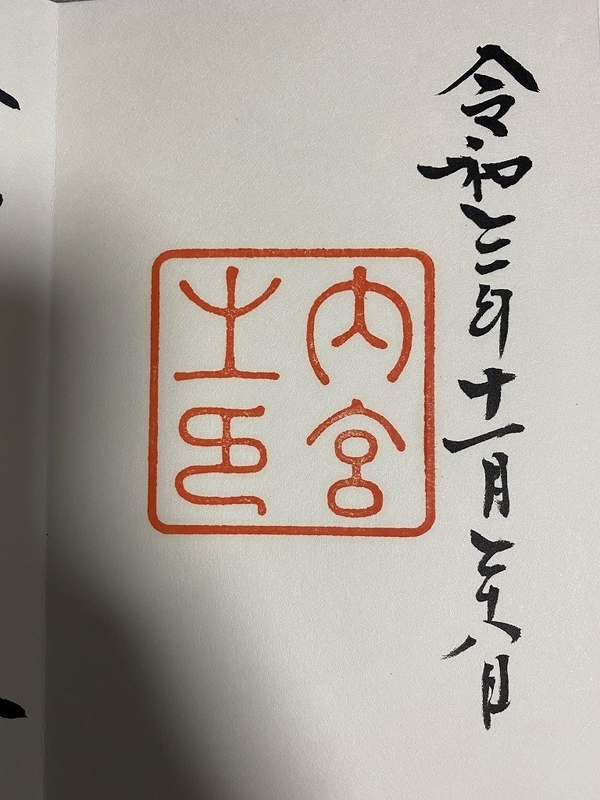 令和三年十一月二十八日
内宮
之印